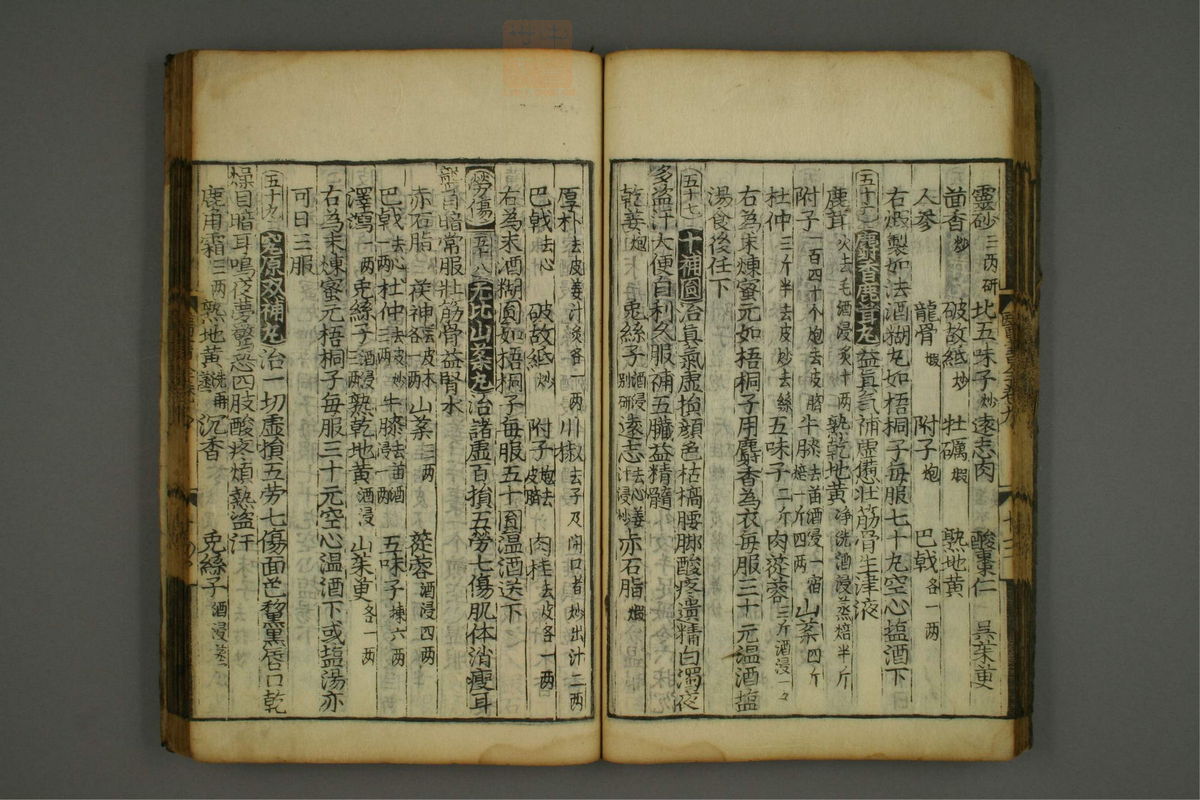 靈砂三两研 比五味子炒 遠志肉 酸棗仁 吳茱萸
茴香炒 破故紙炒 牡礪煅 熟地黄
人参 龍骨煅 附子炮 巴戟各一两
右製如法酒糊丸如梧桐子每服七十丸空心塩酒下
五十六 麝香鹿茸丸 益真氣補虚憊壮筋骨生津液
鹿茸火去毛酒浸炙十两 熟乾地黄净洗酒浸蒸焙半斤
附子一百四十个炮去皮臍 牛膝去苗酒浸一宿焙一斤四两 山薬四斤
杜仲三斤半去皮炒去絲 五味子二斤 肉蓯蓉三斤酒浸一夕
右為末煉蜜元如梧桐子用麝香為衣每服三十元温酒塩
湯食後任下
五十七 十補圓 治真氣虚損顔色枯槁腰脚酸疼遺精白濁夜
多盗汗大便自利久服補五臓益精髓
乾姜炮 兎絲子酒浸别研 遠志去心姜汁浸炒 赤石脂煅
厚朴去皮姜汁炙各一两 川椒去子及閉口者炒出汁二两
巴戟去心 破故紙炒 附子炮去皮臍 肉桂去皮各一两
右為末酒糊圓如梧桐子每服五十圓温酒送下
勞傷 五十八 无比山薬丸 治諸虚百損五劳七傷肌体消瘦耳
聾目暗常服壮筋骨益腎水
赤石脂 茯神去皮木各一两 山薬三两 蓯蓉酒浸四两
巴戟去心一两 杜仲去皮炒三两 牛膝去苗酒浸一两 五味子揀六两
澤瀉一两 兎絲子酒浸三两 熟乾地黄酒浸 山茱萸各一两
右為末煉蜜元梧桐子每服三十元空心温酒下或塩湯亦
可日三服
五十九 究原双補丸 治一切虚損五劳七傷面色黧黒唇口乾
燥目暗耳鳴夜夢驚恐四肢酸疼煩熱盗汗
鹿角霜三两 熟地黄洗再蒸 沉香 兎絲子酒浸蒸